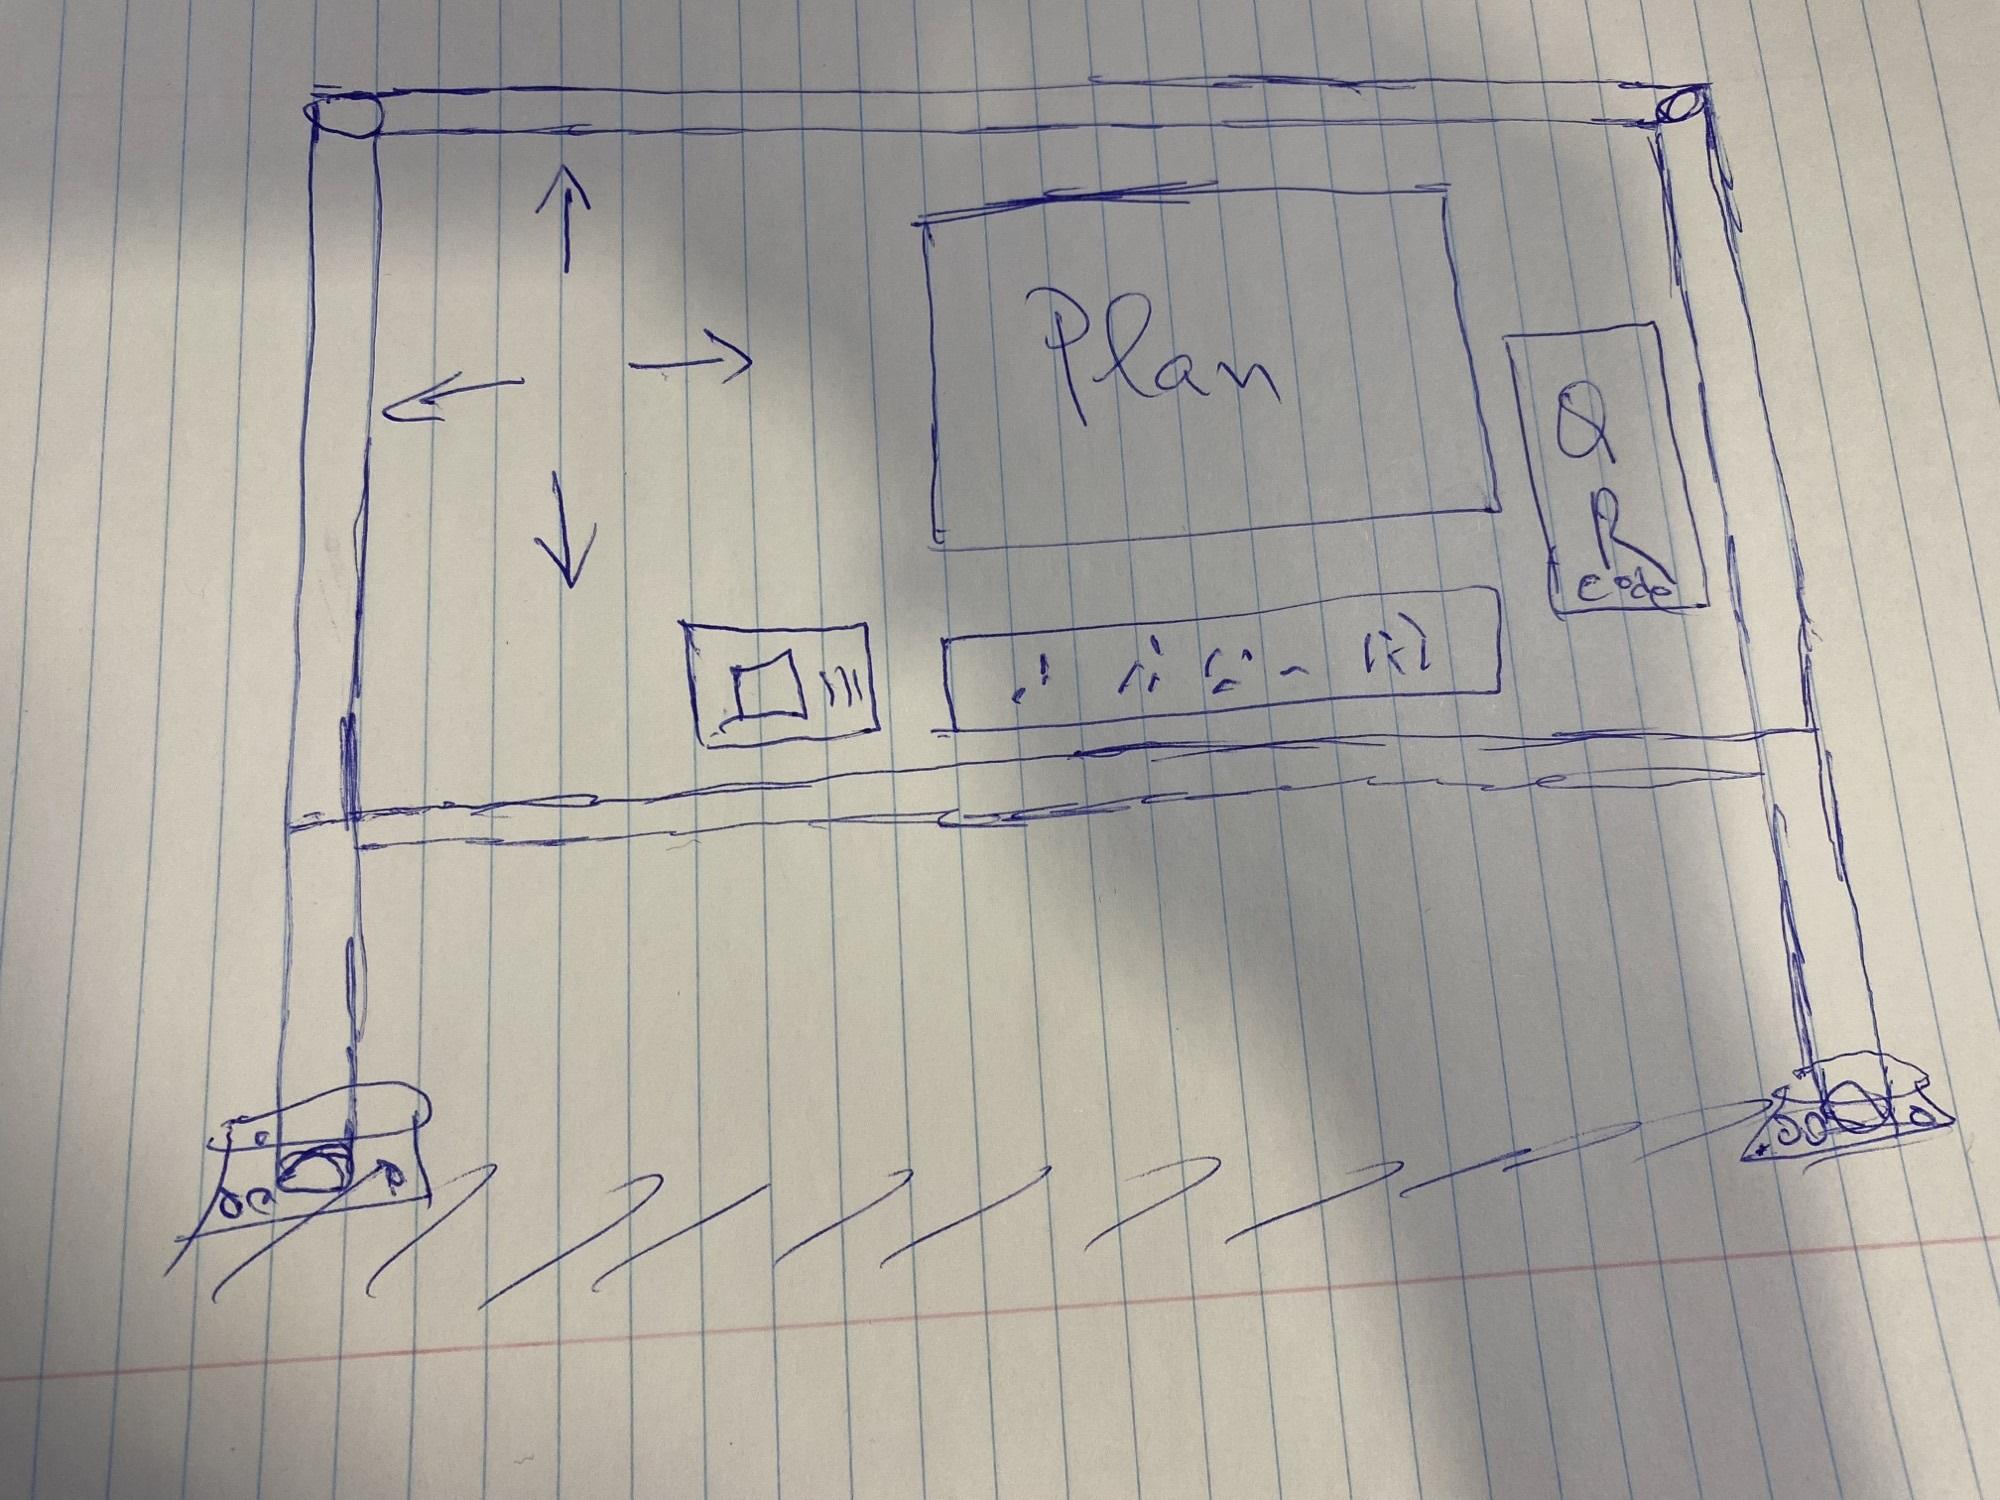 Plan
Q
R
code